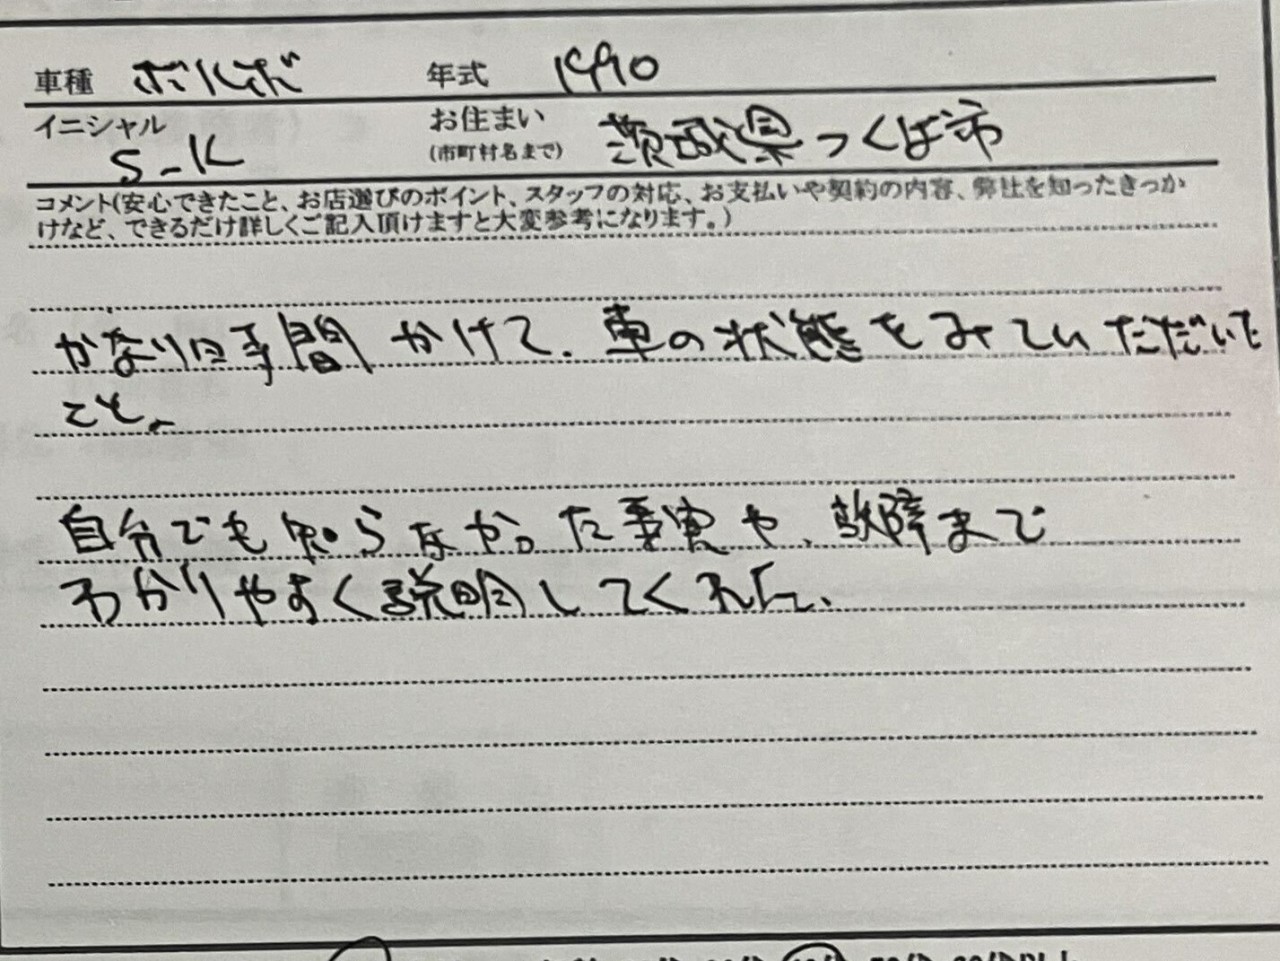 車種 ボルボ 年式 1990
イニシャル S-K お住まい(市町村名まで) 茨城県つくば市
コメント(安心できたこと、お店選びのポイント、スタッフの対応、お支払いや契約の内容、弊社を知ったきっか
けなど、できるだけ詳しくご記入頂けますと大変参考になります。)
かなり手間かけて、車の状態をみていただいた
こと、
自分でも知らなかった事実や、故障まで
わかりやすく説明してくれた、